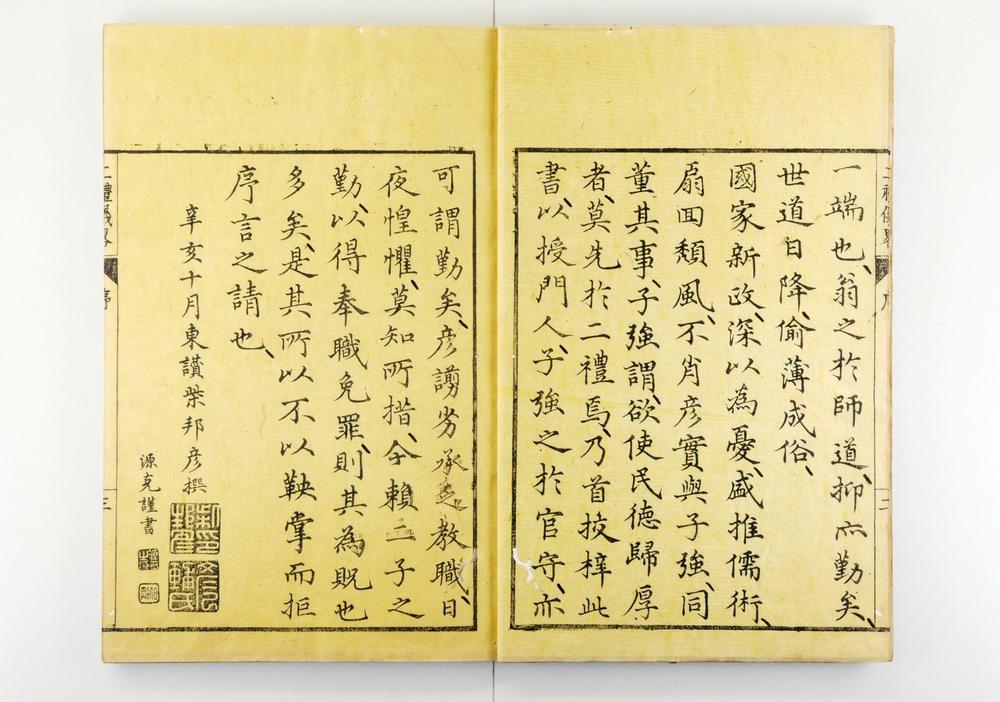 一端也、翁之於師道、抑亦勤矣、
世道日降、偷薄成俗、
國家新政、深以為憂、盛推儒術、
扇回頽風、不肖彦實與子強、同
董其事、子強謂、欲使民德歸厚
者、莫先於二禮焉、乃首挍梓此
書、以授門人、子強之於官守、亦
二禮儀畧
序
二
可謂勤矣、彦謭劣承乏教職、日
夜惶懼、莫知所措、今賴二子之
勤、以得奉職免罪、則其為貺也
多矣、是其所以不以鞅掌而拒
序言之請也、
辛亥十月東讃柴邦彦撰
源克謹書
二禮儀畧
序
三